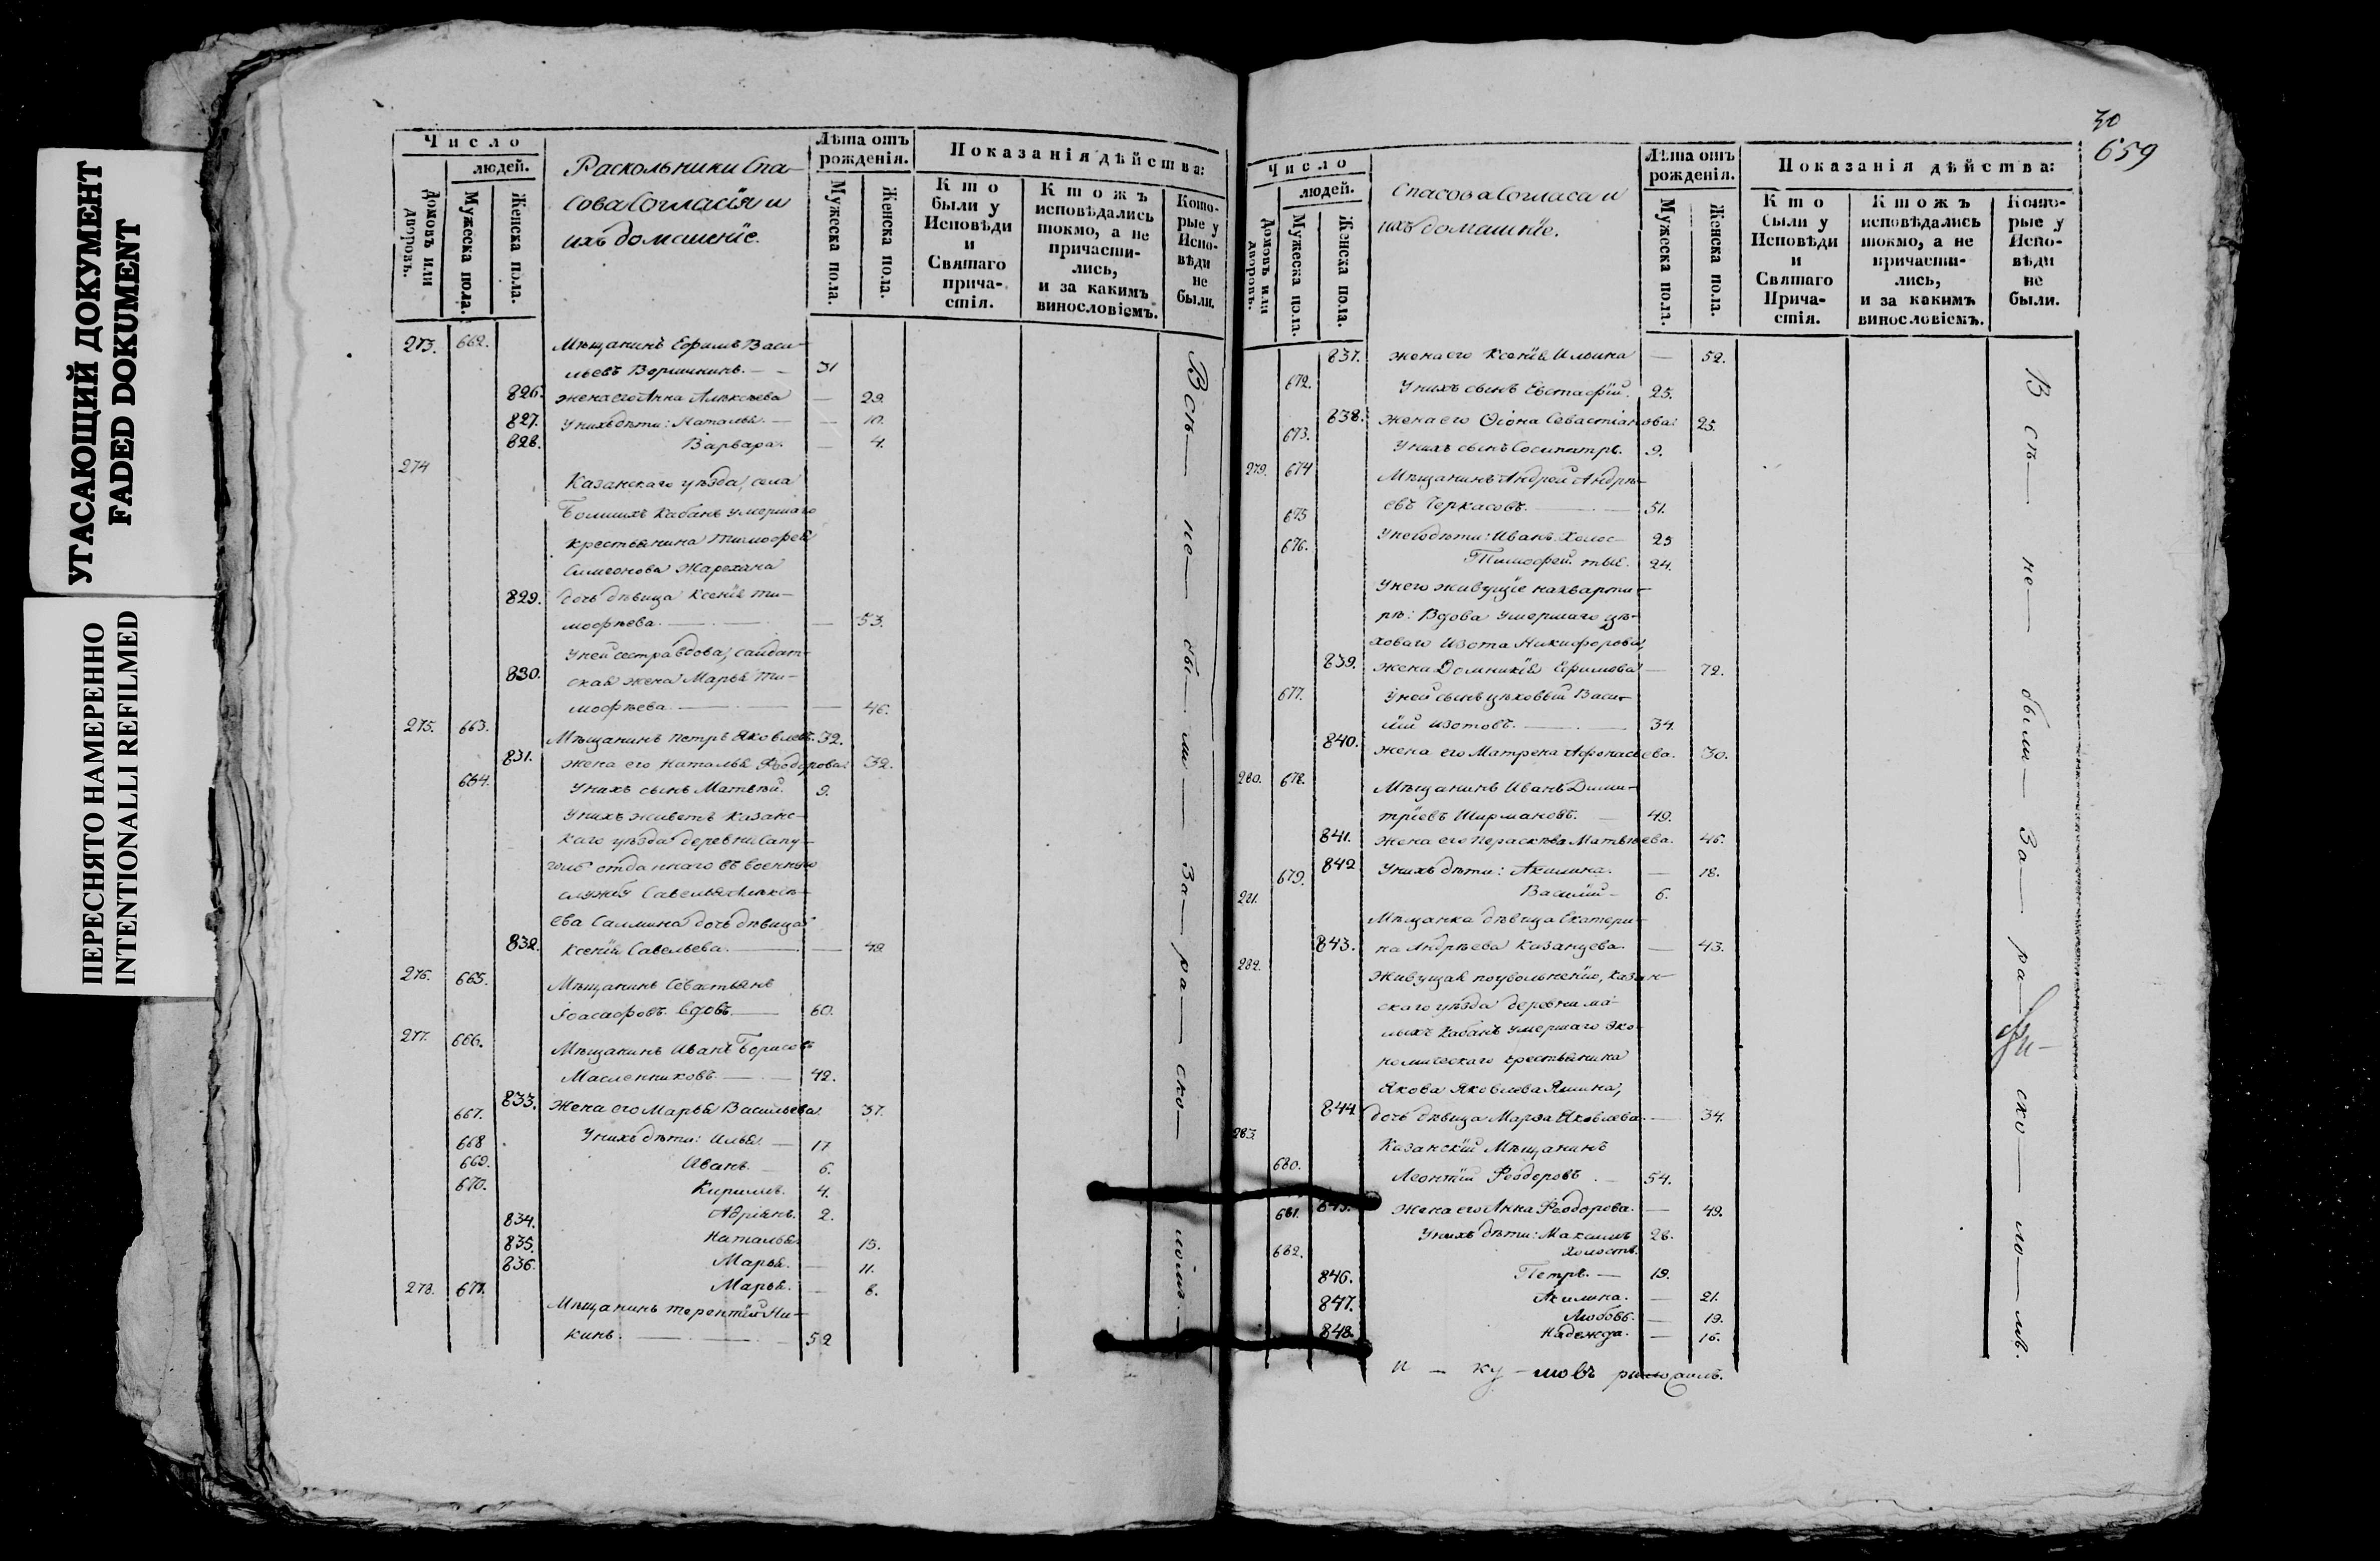 УГАСАЮЩИЙ ДОКУМЕНТ
FADED DOKUMENT
ПЕРЕСНЯТО НАМЕРЕННО
INTENTIONALLI REFILMED
Число
людей.
Домовъ или дворовъ.
Мужеска пола.
Женска пола.
Раскольники Спа-
сова Согласія и
ихъ домашніе.
Лѣта отъ рожденія.
Мужеска пола.
Женска пола.
Показанія дѣйства:
Кто были у Исповѣди и Святаго причастія.
Ктожъ исповѣдались токмо, а не причастились, и за какимъ винословіемъ.
Которые у Исповѣди не были.
273. 662. Мѣщанинъ Ефимъ Васи-
льевъ — 31
826. жена его Анна Алексѣева — 29.
827. У нихъ дѣти: Наталья — 10.
828. Варвара. — 4.
274 Казанскаго уѣзда, села
Большихъ Кабанъ умершаго
крестьянина Тимофея
Симеонова
829. дочь дѣвица Ксенія Ти-
мофѣева. — 53.
У ней сестра вдова, салдат-
830. ская жена Марья Ти-
мофѣева. — 46.
275. 663. Мѣщанинъ Петръ Яковлевъ. 32.
831. жена его Наталья Ѳеодорова. 32.
664. У нихъ сынъ Матвѣй. 9.
У нихъ живетъ Казанс-
каго уѣзда деревни Сапу-
голь отданнаго въ военную
службу Савелья Алексѣ-
ева Салмина дочь дѣвица
832. Ксенія Савельева. — 42.
276. 665. Мѣщанинъ Севастьянъ
Іоасафовъ вдовъ. — 60.
277. 666. Мѣщанинъ Иванъ Борисовъ
Масленниковъ. — 42.
833. Жена его Марья Васильева. 37.
667. У нихъ дѣти: Илья. — 17
668. Иванъ. — 6.
669. Кириллъ. 4.
670. Адріянъ. 2.
834. Наталья. 15.
835. Марья. — 11.
836. Марья. — 8.
278. 671. Мѣщанинъ Терентій Ни-
кинъ. — 52
Всѣ — не — бы — ли — За — ра — ско — ломъ.
30
659
Число
людей.
Домовъ или дворовъ.
Мужеска пола.
Женска пола.
Спасова Согласа и
ихъ домашніе.
Лѣта отъ рожденія.
Мужеска пола.
Женска пола.
Показанія дѣйства:
Кто были у Исповѣди и Святаго Причастія.
Ктожъ исповѣдались токмо, а не причастились, и за какимъ винословіемъ.
Которые у Исповѣди не были.
837. жена его Ксенія Ильина — 52.
672. У нихъ сынъ Евстафій. 25.
838. жена его Ѳіона Севастіанова. 25.
673. У нихъ сынъ Сосипатръ. 9.
279. 674 Мѣщанинъ Андрей Андрѣ-
евъ Черкасовъ. — 51.
675 У него дѣти: Иванъ. Холос- 25
676. Тимофей. тые. 24.
У него живущіе на кварти-
рѣ: Вдова умершаго цѣ-
ховаго Изота Никифорова,
839. жена Домникія Ефимова — 72.
677. У ней сынъ цѣховый Васи-
лій Изотовъ. — 34.
840. жена его Матрена Афонасьева. 30.
280. 678. Мѣщанинъ Иванъ Дими-
тріевъ Ширмановъ. — 49.
841. жена его Параскѣва Матвѣева. 46.
842 У нихъ дѣти: Акилина. — 18.
679. Василій — 6.
281. Мѣщанка дѣвица Екатери-
843. на Андрѣева Казанцева. — 43.
282. Живущая по увольненію, Казан-
скаго уѣзда деревни Ма-
лыхъ Кабанъ умершаго эко-
номическаго крестьянина
Якова Яковлева Яшина,
844 дочь дѣвица Марѳа Яковлева. — 34.
283. Казанскій Мѣщанинъ
680. Леонтій Ѳеодоровъ. — 54.
845. Жена его Анна Ѳеодорова. — 49.
681. У нихъ дѣти: Максимъ 28.
холостъ.
682. Петръ. — 19.
846. Акилина. — 21.
847. Любовь. — 19.
848. Надежда. — 16.
Всѣ — не — были — За — ра — ско — ло — мъ.